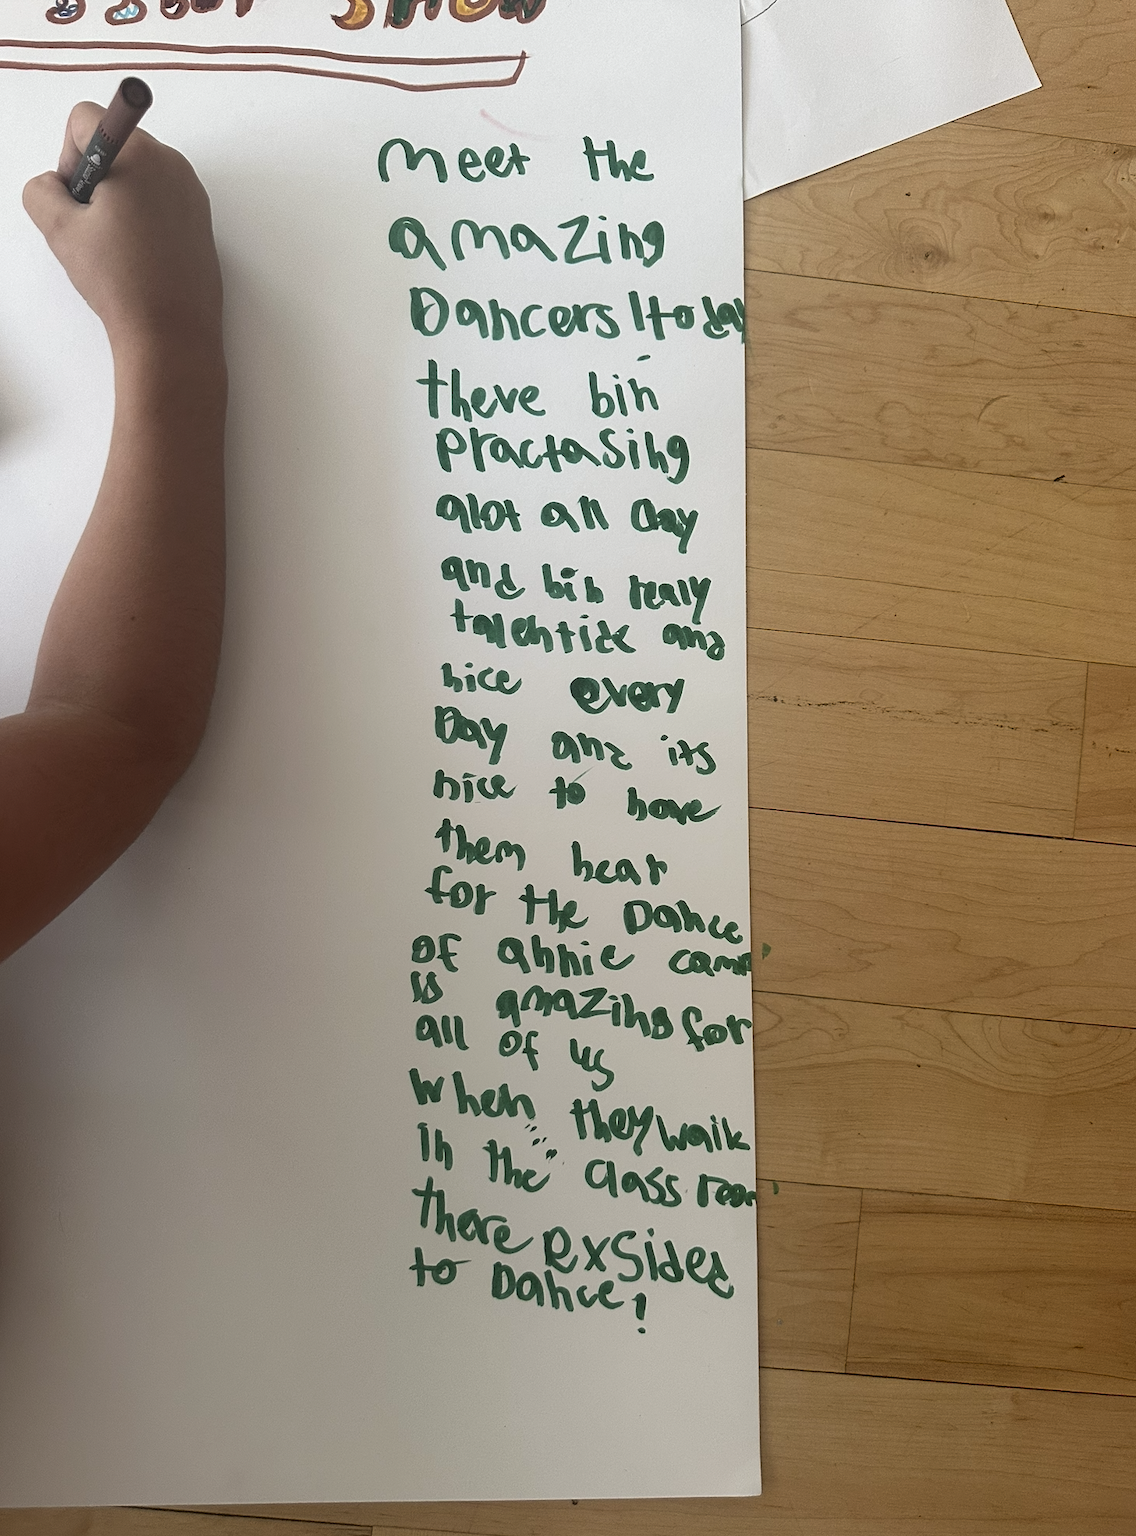 SHOW
Meet the
amazing
Dancers! today
theve bin
practasing
alot all day
and bin realy
talentide and
nice every
Day and its
nice to have
them hear
for the Dance
of annie came
is amazing for
all of us
when they walk
in the class room
there exsided
to Dance!